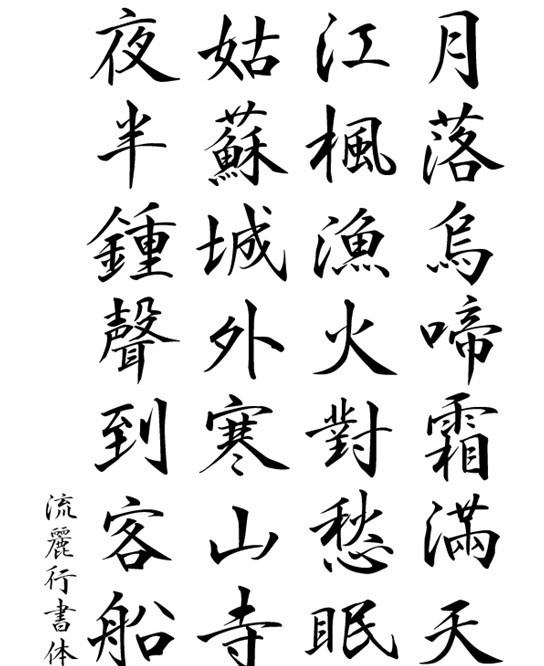 月落烏啼霜滿天
江楓漁火對愁眠
姑蘇城外寒山寺
夜半鍾聲到客船
流麗行書体